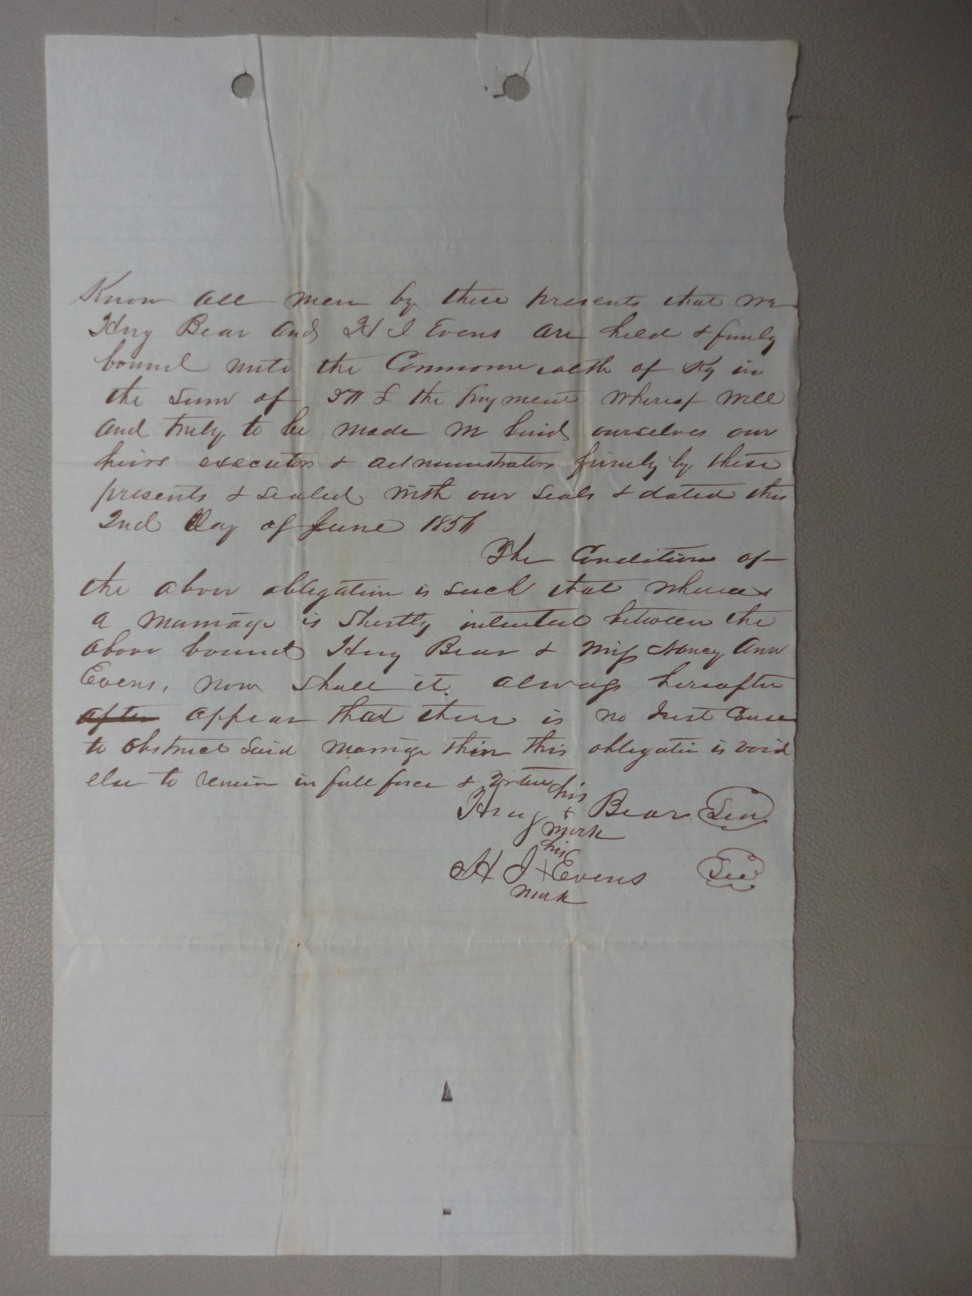 Know all men by these presents that we
Hny Bear and H J Evens are held & firmly
bound unto the Commonwealth of Ky in
the Sum of the payment whereof well
and truly to be made we bind ourselves our
heirs executors & administrators firmly by these
presents & sealed with our seals & dated this
2nd Day of June
The Condition of
the above obligation is such that whereas
a marriage is shortly intended between the
above bound Hny Bear & Miss Nancy Ann
Evens, now shall it always hereafter
after appear that there is no Just Cause
to obstruct said Marrige then this obligatin is void
else to remain in full force & Virtue
his
Hny + Bear Seal
mark
his
H J + Evens Seal
mark